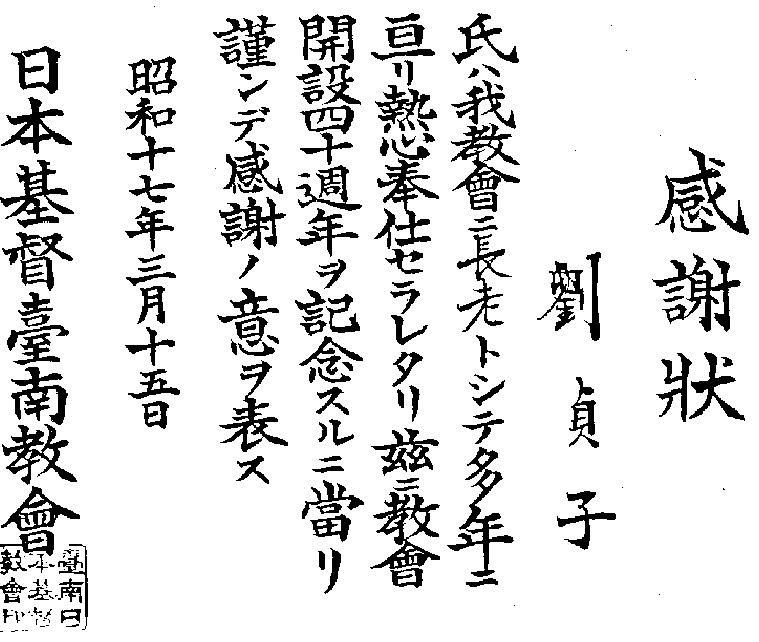 感謝狀
劉貞子
氏ハ我教會ニ長老トシテ多年ニ
亘リ熱心奉仕セラレタリ茲ニ教會
開設四十週年ヲ記念スルニ當リ
謹ンデ感謝ノ意ヲ表ス
昭和十七年三月十五日
日本基督臺南教會
臺南日
本基督
教會印